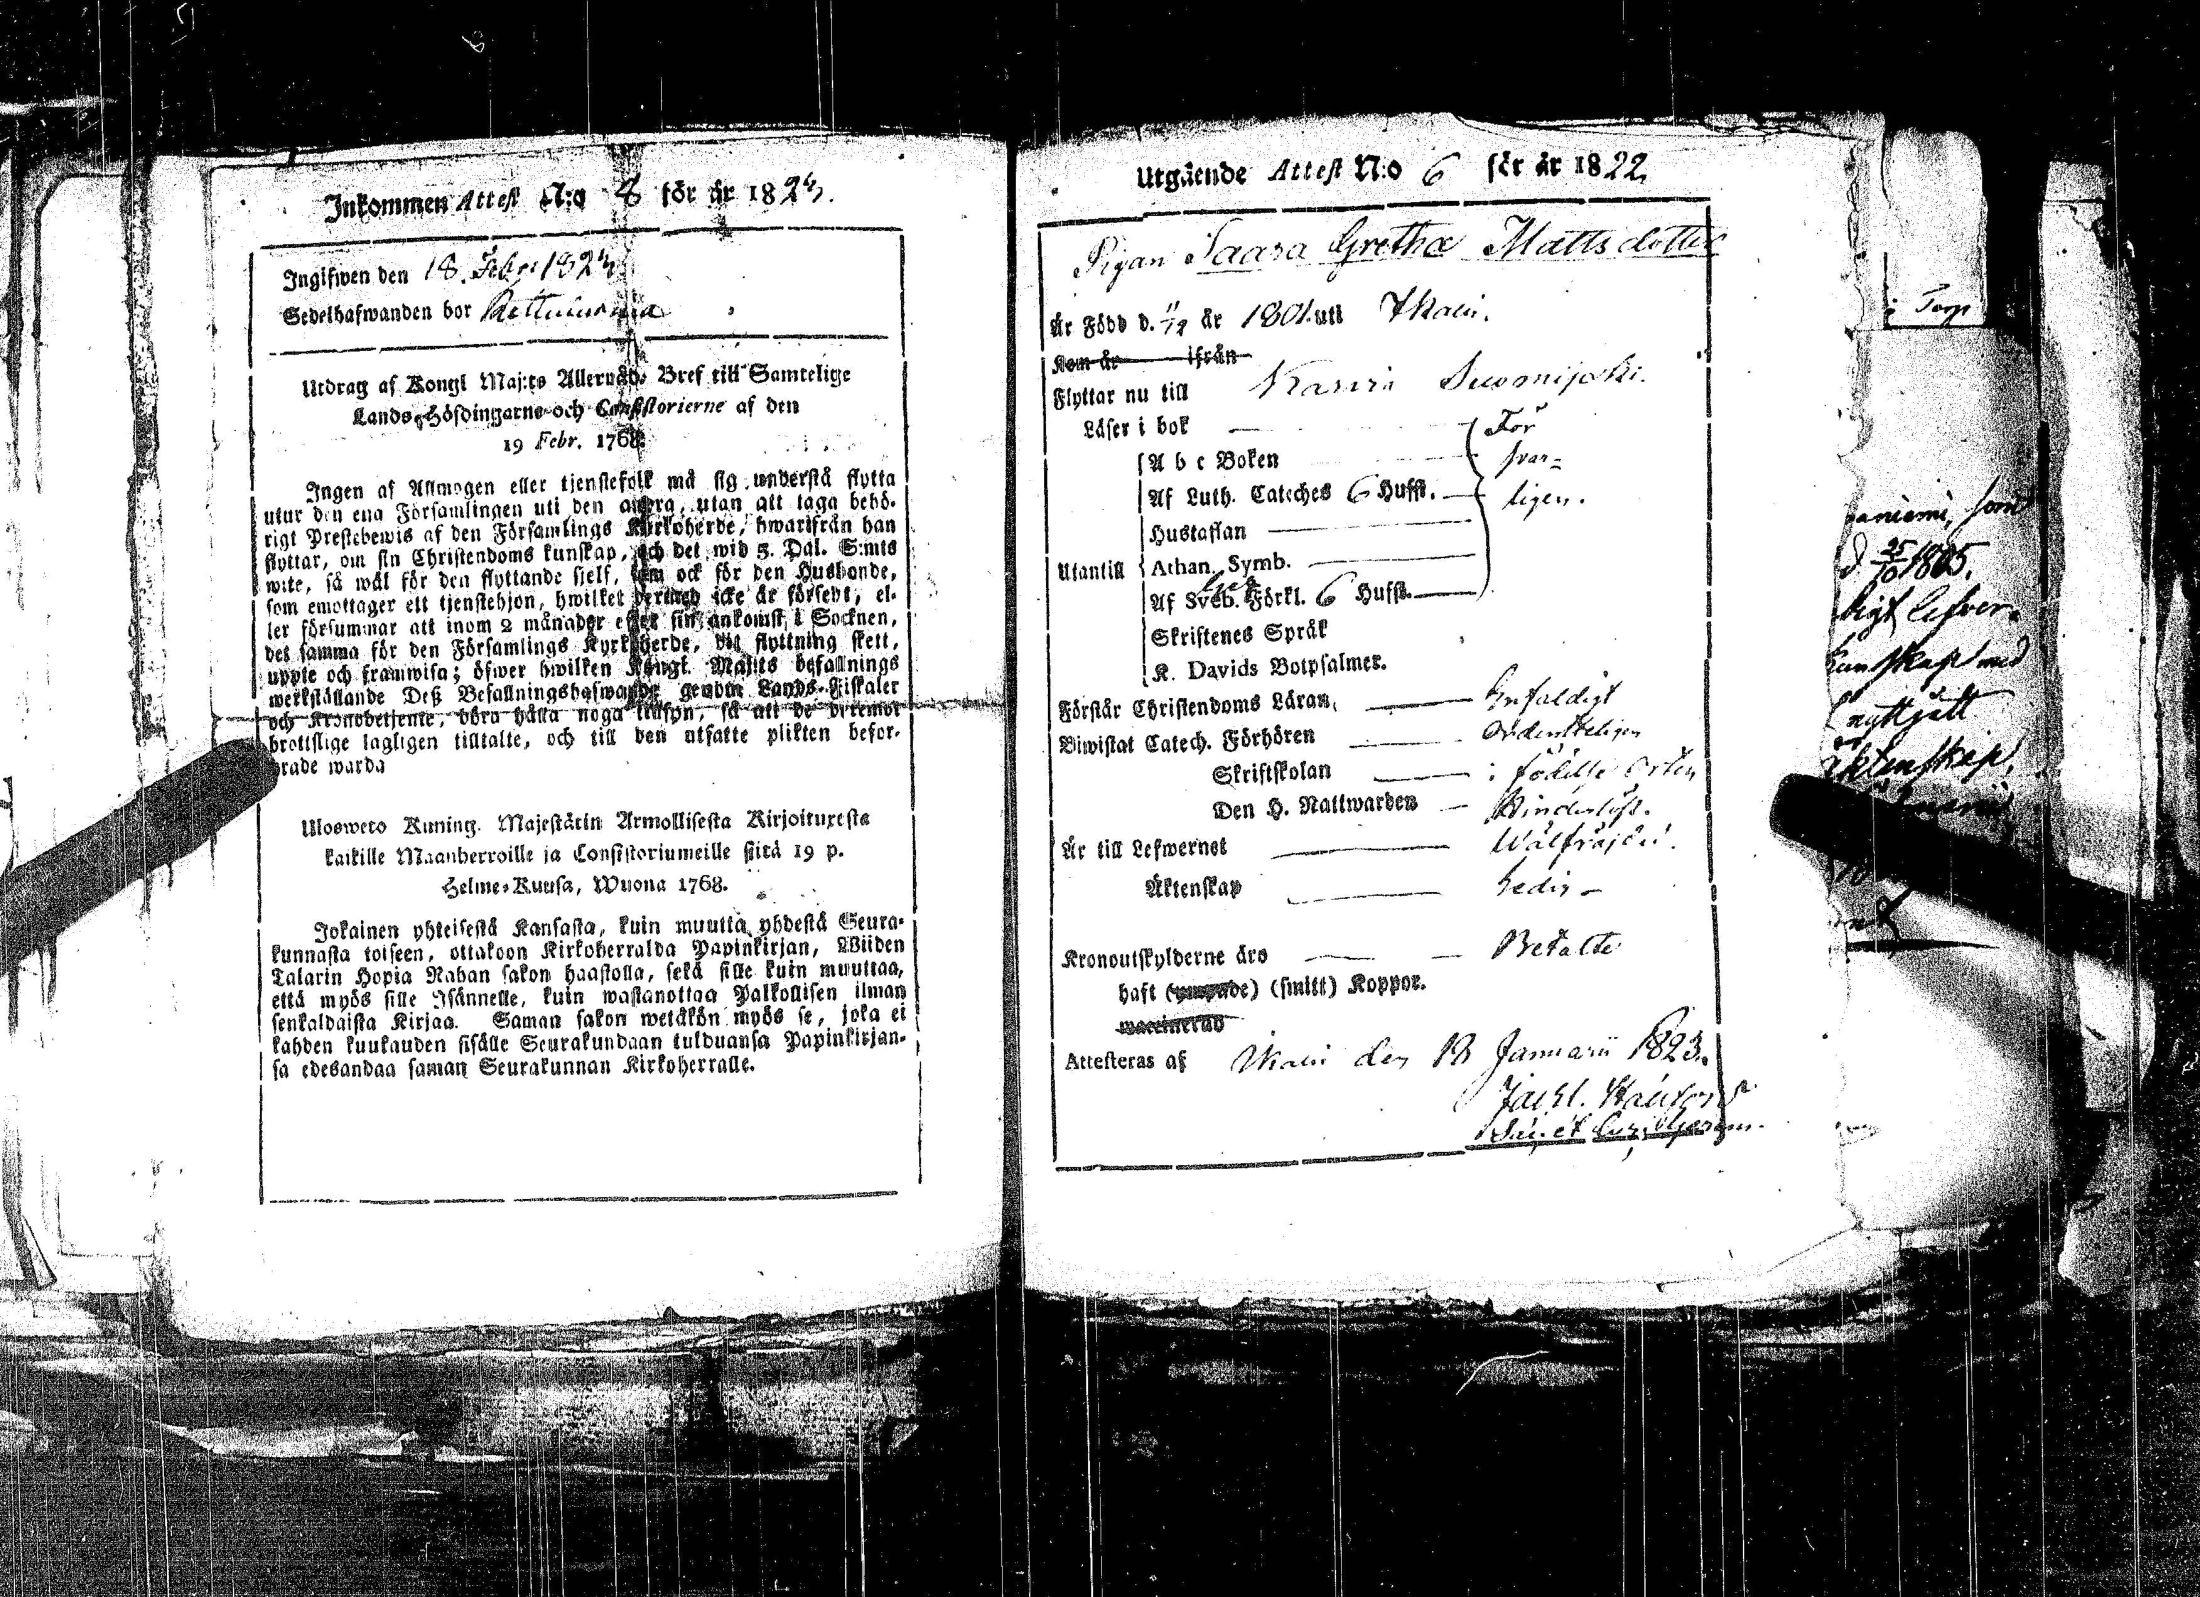 Inkommen Attest N:o 8 för år 1823.
Ingifwen den 18. Febr. 1823
Sedelhafwanden bor
Utdrag af Kongl Maj:ts Allernåd. Bref till Samtelige
Lands-Höfdingarne och Consistorierne af den
19 Febr. 1768.
Ingen af Allmogen eller tjenstefolk må sig understå flytta
utur den ena Församlingen uti den andra, utan att taga behö-
rigt Prestebewis af den Församlings Kyrkoherde, hwarifrån han
flyttar, om sin Christendoms kunskap, och det wid 5. Dal. S:mts
wite, så wäl för den flyttande sjelf, som ock för den Husbonde,
som emottager ett tjenstehjon, hwilket dermed icke är försedt, el-
ler försummar att inom 2 månader efter sin ankomst i Socknen,
det samma för den Församlings Kyrkoherde, dit flyttning skett,
uppte och framwisa; öfwer hwilken Kongl. Maj:ts befallnings
werkställande Deß Befallningshafwande genom Lands-Fiskaler
och Kronobetjente, böra hålla noga tillsyn, så att de deremot
brottslige lagligen tilltalte, och till den utsatte plikten befor-
drade warda
Ulosweto Kuning. Majestätin Armollisesta Kirjoituxesta
kaikille Maanherroille ja Consistoriumeille siitä 19 p.
Helme-Kuusa, Wuona 1768.
Jokainen yhteisestä Kansasta, kuin muutta yhdestä Seura-
kunnasta toiseen, ottakoon Kirkoherralda Papinkirjan, Wiiden
Talarin Hopia Rahan sakon haastolla, sekä sille kuin muuttaa,
että myös sille Isännelle, kuin wastanottaa Palkollisen ilman
senkaldaista Kirjaa. Saman sakon wetäkön myös se, joka ei
kahden kuukauden sisälle Seurakundaan tulduansa Papinkirjan-
sa edesandaa saman Seurakunnan Kirkoherralle.
Utgående Attest N:o 6 för år 1822
Pigan Saara Gretha Mattsdotter
Är Född d. 11/12 år 1801. uti Ikalis.
Kom år ifrån
Flyttar nu till Karvia Suomijoki.
Läser i bok För
A b c Boken svar-
Af Luth. Cateches 6 Hufst. ligen.
Hustaflan
Utantill Athan. Symb.
Af Sveb. Förkl. 6 Hufst.
Skriftenes Språk
K. Davids Botpsalmer.
Förstår Christendoms Läran, Enfaldigt
Biwistat Catech. Förhören Ordentteligen
Skriftskolan i födelse Orten
Den H. Nattwarden Hinderlöst.
Är till Lefwernet Wälfräjdad.
Äktenskap Ledig
Kronoutskylderne äro Betalte
haft (ympade) (smitt) Koppor.
waccinerad
Attesteras af Ikalis den 18 Januarii 1823.
i Torp
som
d 25/10 1805.
ligt lefver-
kunskap med
nyttjatt
äktenskap,